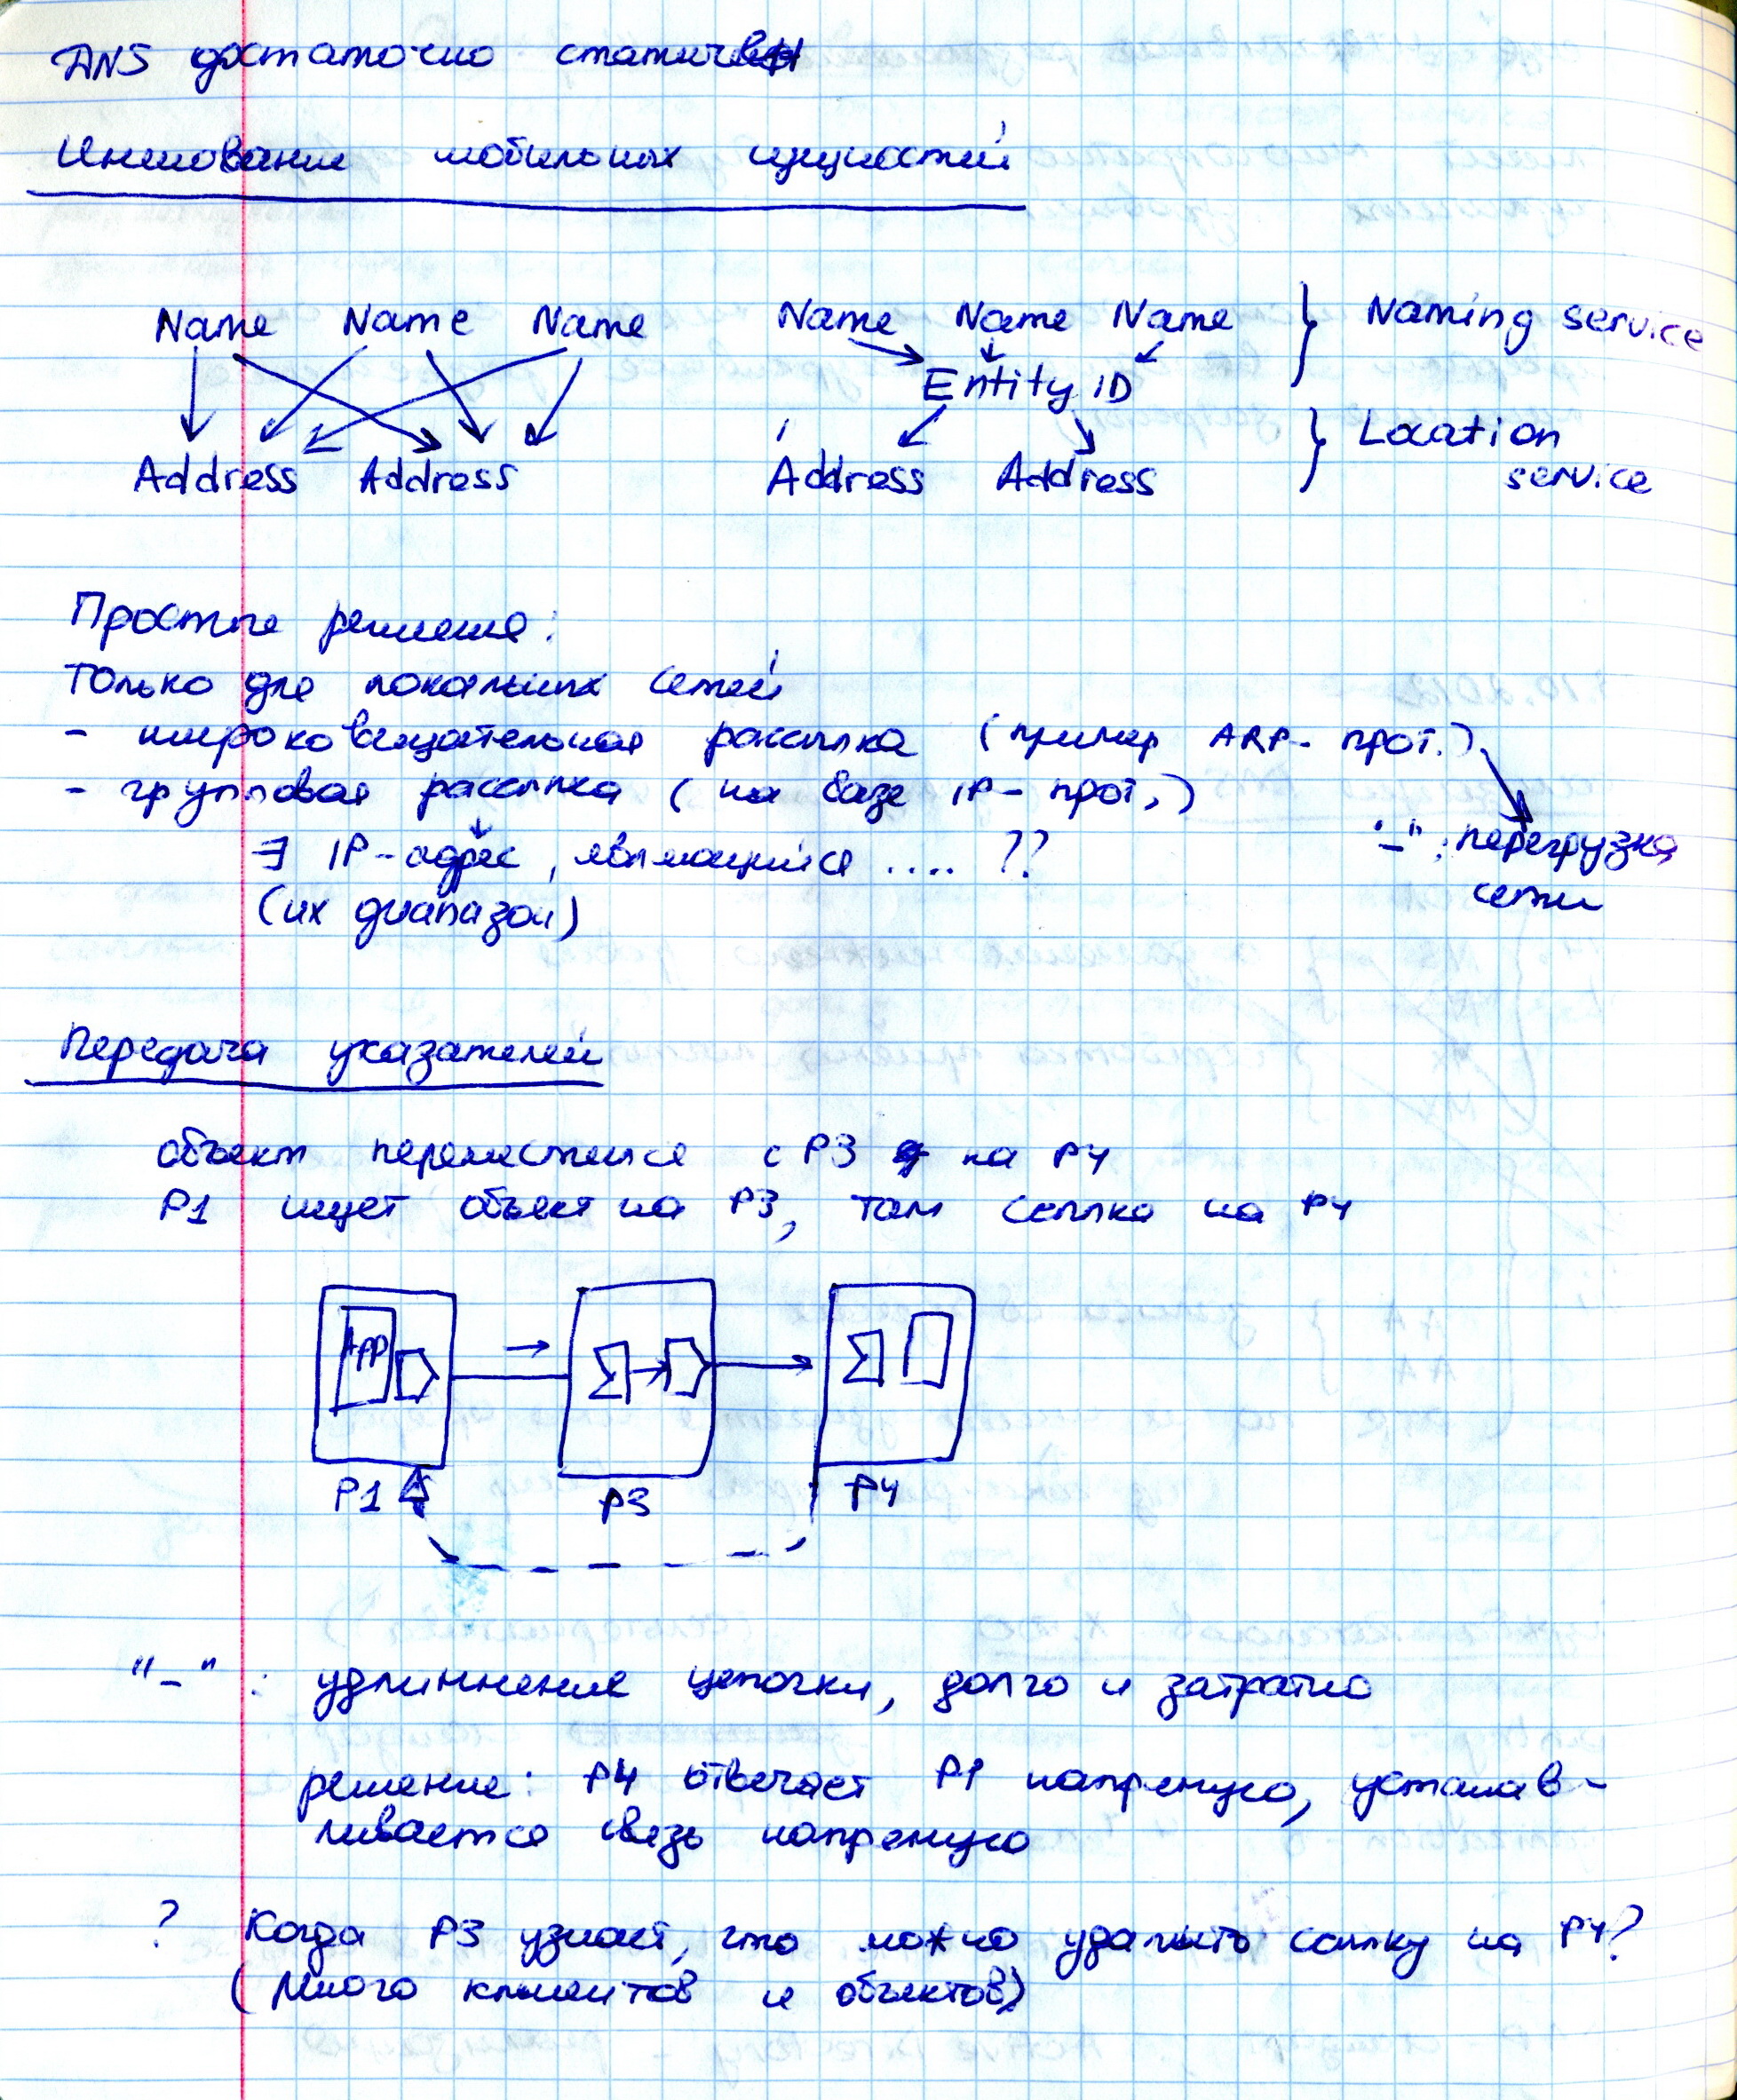 DNS достаточно статичен
Именование мобильных сущностей
Name Name Name Name Name Name } Naming service
Entity ID
Address Address Address Address } Location
service
Простые решения:
Только для локальных сетей
- широковещательная рассылка (пример ARP-прот.)
- групповая рассылка (на базе IP-прот.)
∃ IP-адрес, являющийся .... ??
"-": перегрузка
сети
(их диапазон)
Передача указателей
объект переместился с P3 на P4
P1 ищет объект на P3, там ссылка на P4
APP
P1 P3 P4
"-": удлиннение цепочки, долго и затратно
решение: P4 отвечает P1 напрямую, устанав-
ливается связь напрямую
? Когда P3 узнает, что можно удалить ссылку на P4?
(Много клиентов и объектов)